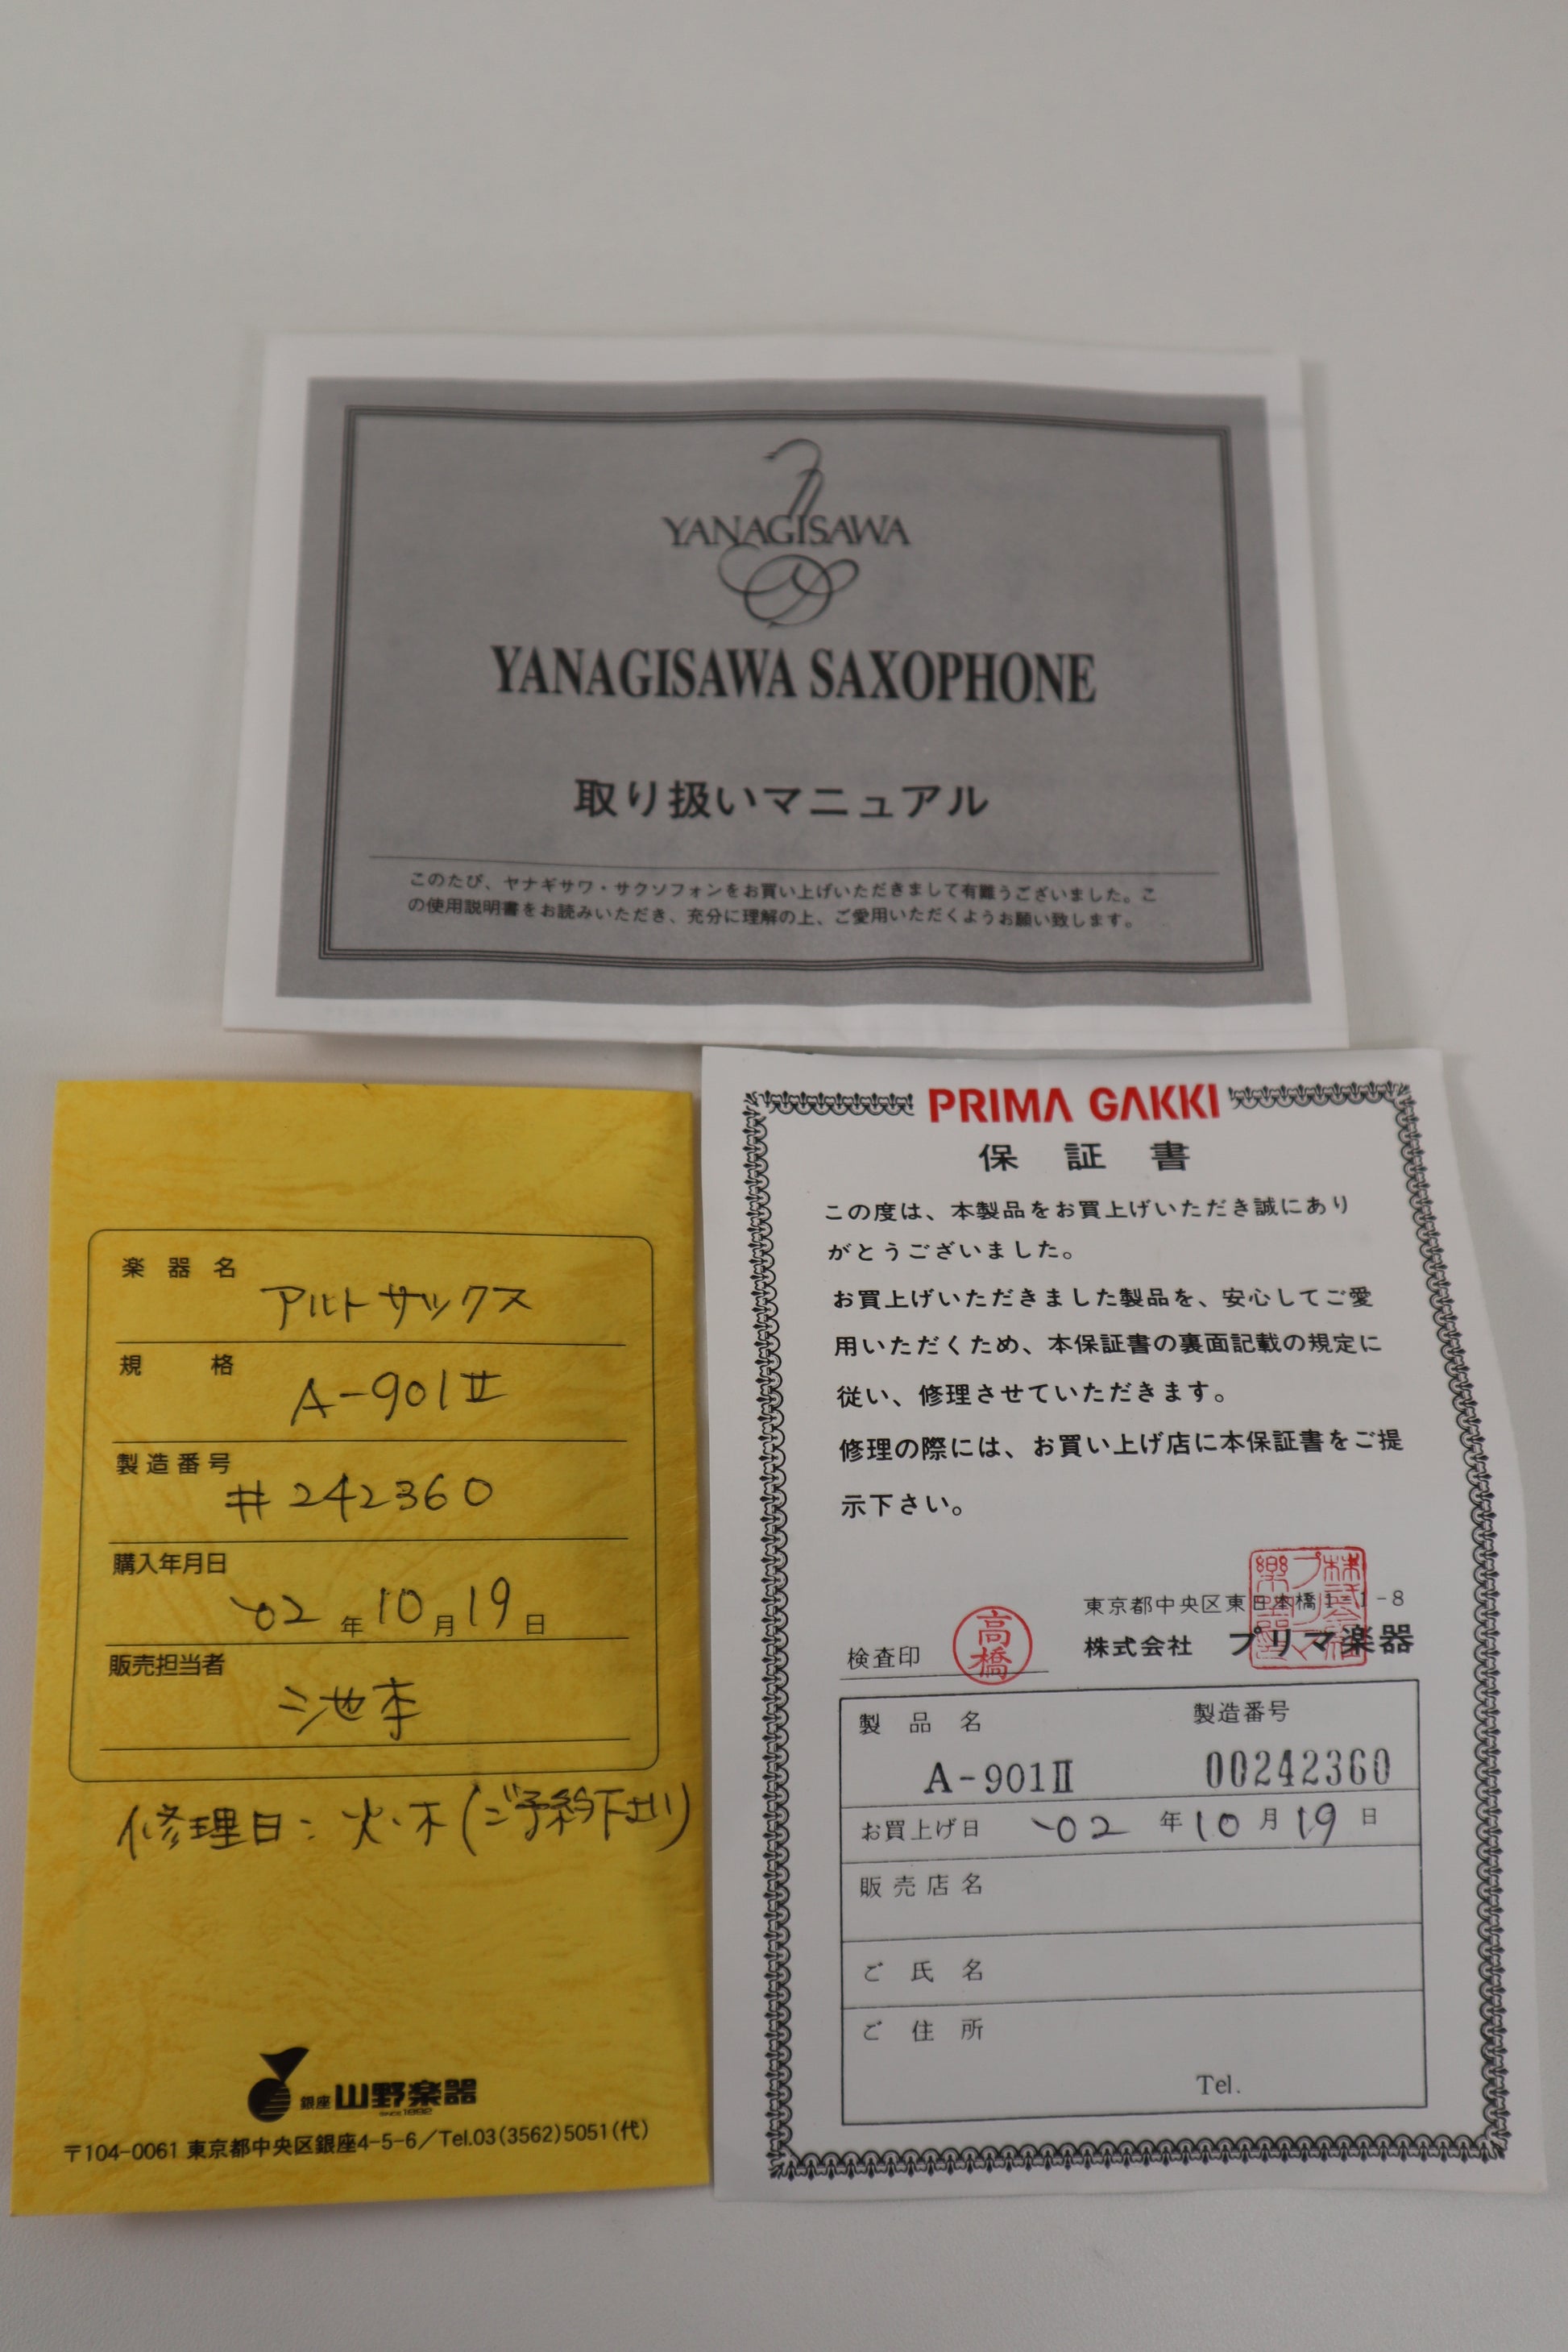 YANAGISAWA
YANAGISAWA SAXOPHONE
取り扱いマニュアル
このたび、ヤナギサワ・サクソフォンをお買い上げいただきまして有難うございました。こ
の使用説明書をお読みいただき、充分に理解の上、ご愛用いただくようお願い致します。
楽器名
アルトサックス
規格
A-901Ⅱ
製造番号
#242360
購入年月日
'02年10月19日
販売担当者
池本
修理日:火・木(ご予約下さい)
銀座 山野楽器
SINCE 1892
〒104-0061 東京都中央区銀座4-5-6/Tel.03(3562)5051(代)
PRIMA GAKKI
保証書
この度は、本製品をお買上げいただき誠にあり
がとうございました。
お買上げいただきました製品を、安心してご愛
用いただくため、本保証書の裏面記載の規定に
従い、修理させていただきます。
修理の際には、お買い上げ店に本保証書をご提
示下さい。
東京都中央区東日本橋1-1-8
検査印 高橋 株式会社 プリマ楽器
製品名 製造番号
A-901Ⅱ 00242360
お買上げ日 '02年10月19日
販売店名
ご氏名
ご住所
Tel.